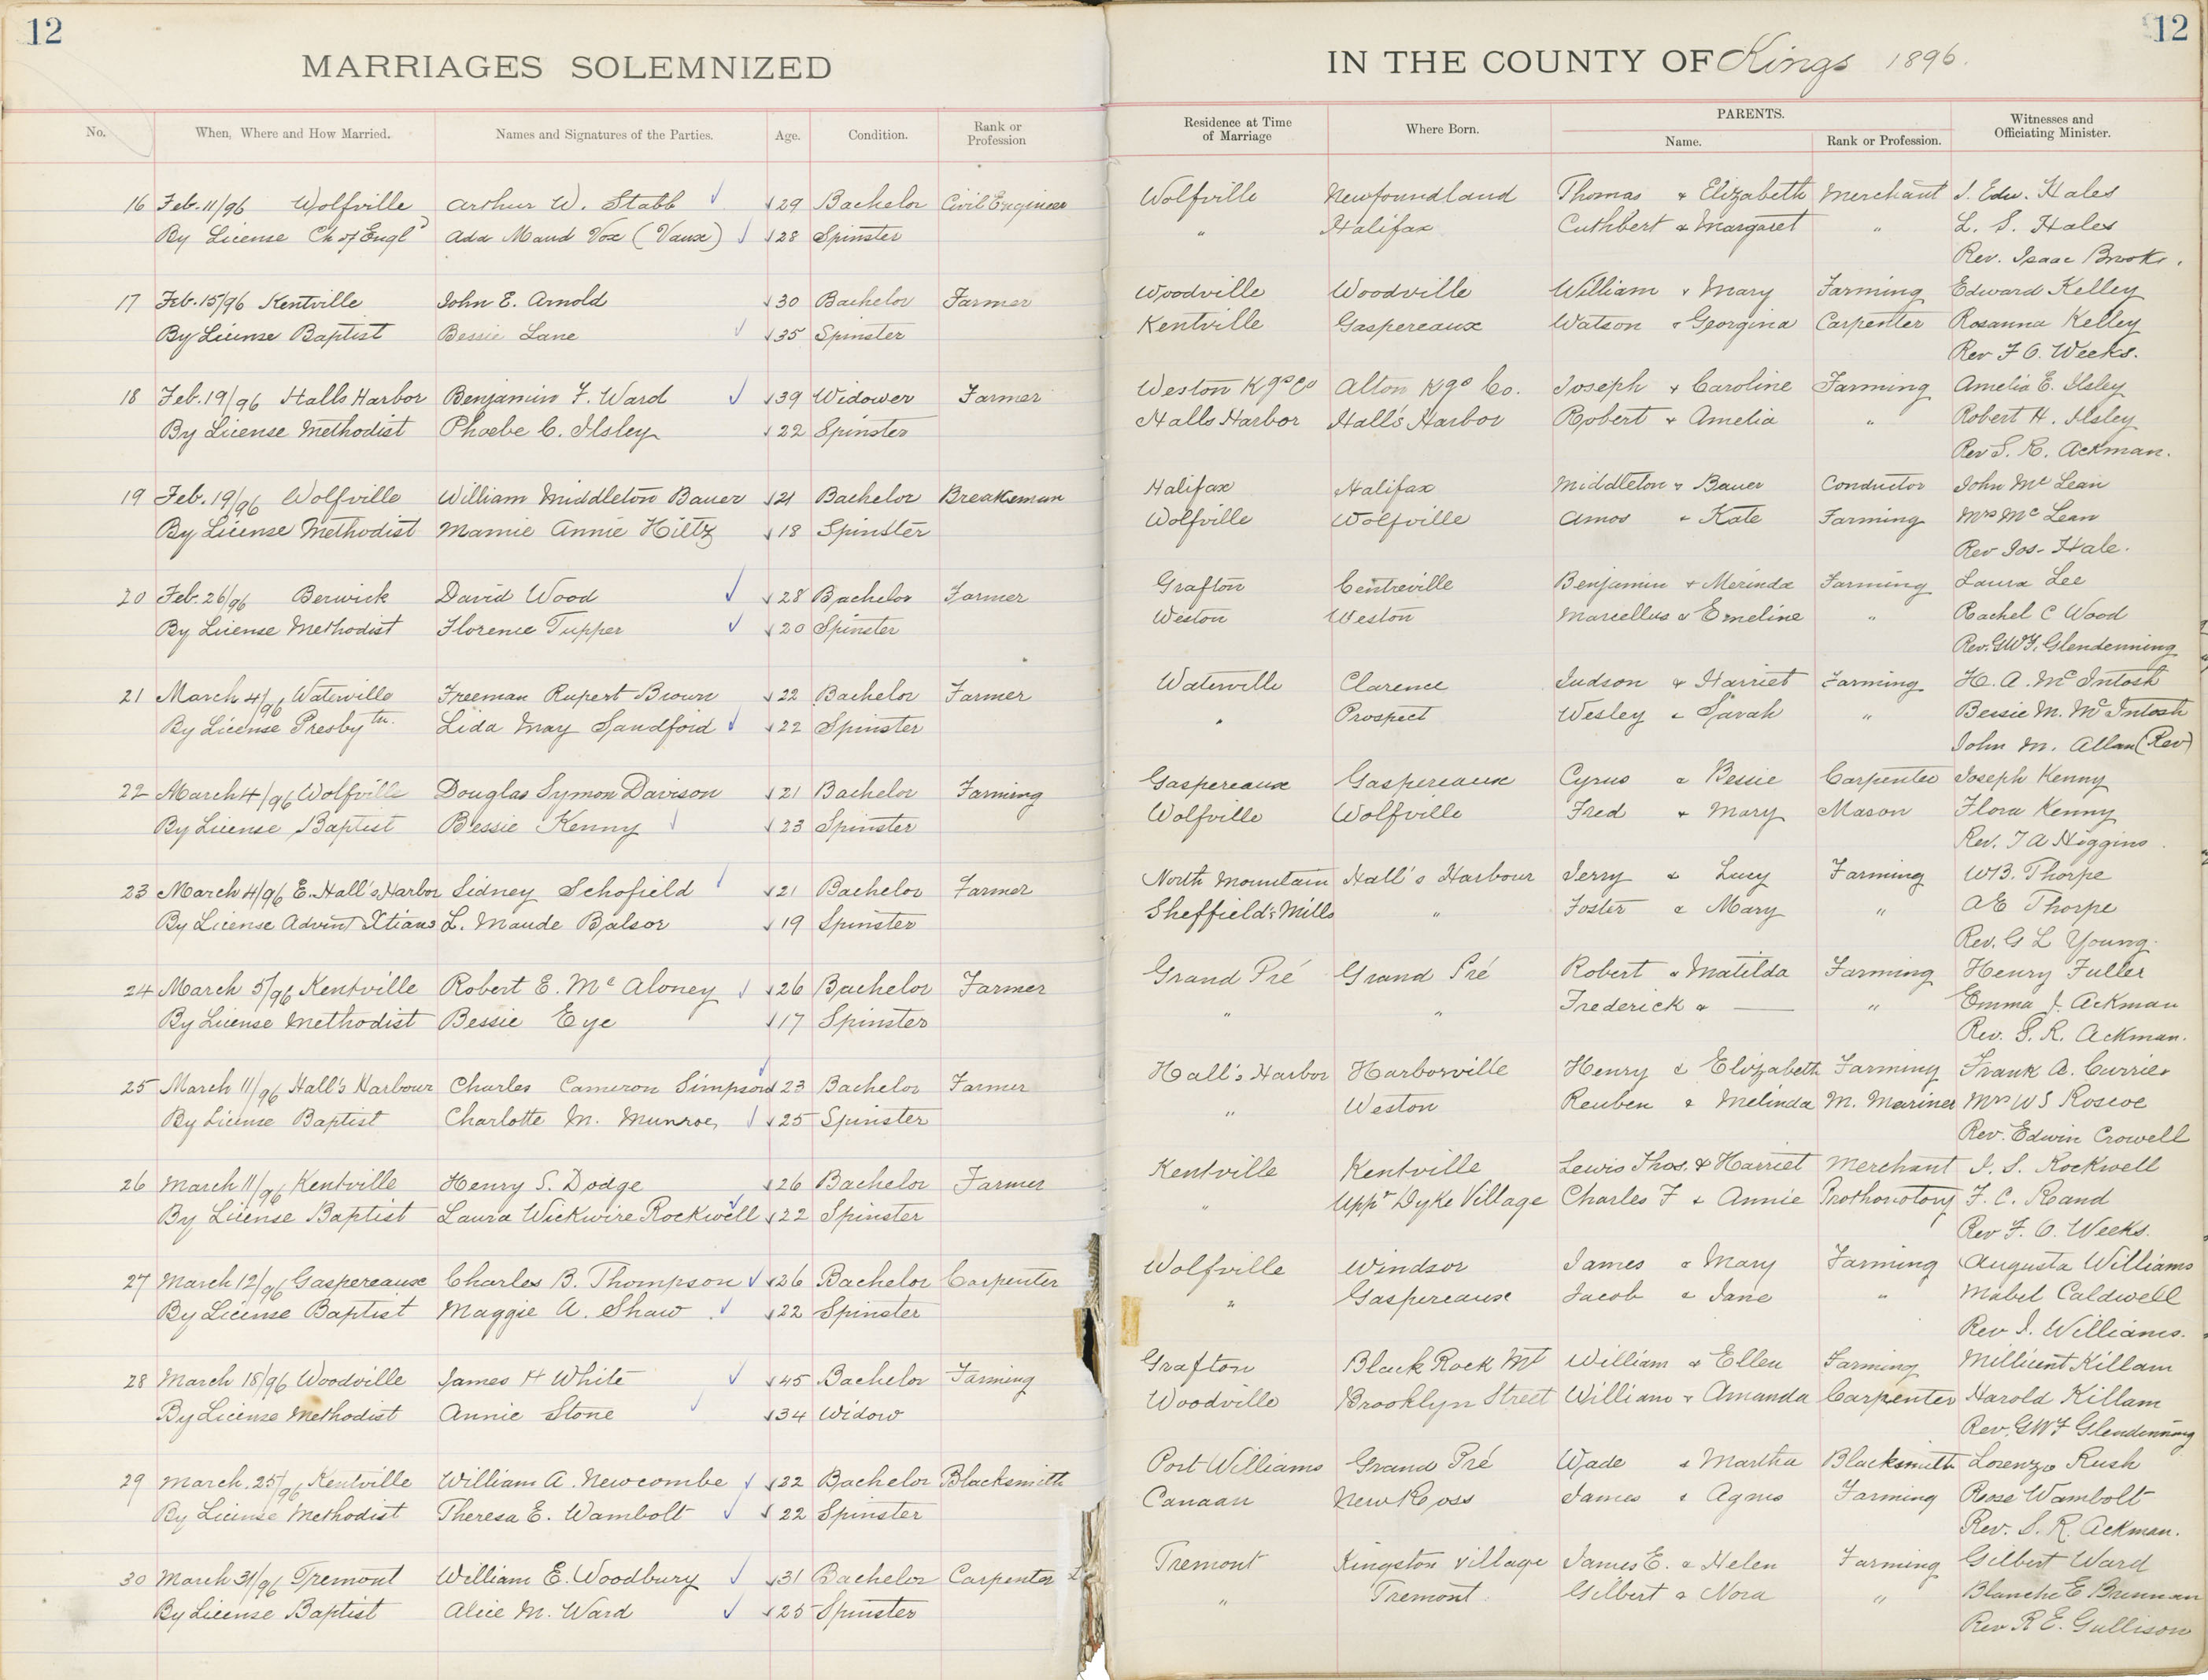 12
MARRIAGES SOLEMNIZED
No. When, Where and How Married. Names and Signatures of the Parties. Age. Condition. Rank or Profession
16 Feb. 11/96 Wolfville Arthur W. Stabb 29 Bachelor Civil Engineer
By License Ch of Engld Ada Maud Vox (Vaux) 28 Spinster
17 Feb. 15/96 Kentville John E. Arnold 30 Bachelor Farmer
By License Baptist Bessie Lane 35 Spinster
18 Feb. 19/96 Halls Harbor Benjamin F. Ward 39 Widower Farmer
By License Methodist Phoebe C. Ilsley 22 Spinster
19 Feb. 19/96 Wolfville William Middleton Bauer 21 Bachelor Breaksman
By License Methodist Mamie Annie Hiltz 18 Spinster
20 Feb. 26/96 Berwick David Wood 28 Bachelor Farmer
By License Methodist Florence Tupper 20 Spinster
21 March 4/96 Waterville Freeman Rupert Brown 22 Bachelor Farmer
By License Presbytn. Lida May Sandford 22 Spinster
22 March 4/96 Wolfville Douglas Symon Davison 21 Bachelor Farming
By License Baptist Bessie Kenny 23 Spinster
23 March 4/96 E. Hall's Harbor Sidney Schofield 21 Bachelor Farmer
By License Advent Xtians L. Maude Balsor 19 Spinster
24 March 5/96 Kentville Robert E. Mc Aloney 26 Bachelor Farmer
By License Methodist Bessie Eye 17 Spinster
25 March 11/96 Hall's Harbour Charles Cameron Simpson 23 Bachelor Farmer
By License Baptist Charlotte M. Munroe 25 Spinster
26 March 11/96 Kentville Henry S. Dodge 26 Bachelor Farmer
By License Baptist Laura Wickwire Rockwell 22 Spinster
27 March 12/96 Gaspereaux Charles B. Thompson 26 Bachelor Carpenter
By License Baptist Maggie A. Shaw 22 Spinster
28 March 18/96 Woodville James H White 45 Bachelor Farming
By License Methodist Annie Stone 34 Widow
29 March. 25/96 Kentville William A. Newcombe 32 Bachelor Blacksmith
By License Methodist Theresa E. Wambolt 22 Spinster
30 March 31/96 Tremont William E. Woodbury 31 Bachelor Carpenter
By License Baptist Alice M. Ward 25 Spinster
12
IN THE COUNTY OF Kings 1896.
Residence at Time of Marriage Where Born. PARENTS. Name. Rank or Profession. Witnesses and Officiating Minister.
Wolfville Newfoundland Thomas & Elizabeth Merchant J. Edw. Hales
" Halifax Cuthbert & Margaret " L. S. Hales
Rev. Isaac Brock.
Woodville Woodville William & Mary Farming Edward Kelley
Kentville Gaspereaux Watson & Georgina Carpenter Rosanna Kelley
Rev F O. Weeks.
Weston Kgs Co Alton Kgs Co. Joseph & Caroline Farming Amelia E. Ilsley
Halls Harbor Hall's Harbor Robert & Amelia " Robert H. Ilsley
Rev S. R. Ackman.
Halifax Halifax Middleton & Bauer Conductor John Mc Lean
Wolfville Wolfville Amos & Kate Farming Mrs Mc Lean
Rev Jos. Hale.
Grafton Centreville Benjamin & Merinda Farming Laura Lee
Weston Weston Marcellus & Emeline " Rachel C Wood
Rev. GWF. Glendenning
Waterville Clarence Judson & Harriet Farming H. A. Mc Intosh
" Prospect Wesley & Sarah " Bessie M. Mc Intosh
John M. Allan (Rev)
Gaspereaux Gaspereaux Cyrus & Bessie Carpenter Joseph Kenny
Wolfville Wolfville Fred & Mary Mason Flora Kenny
Rev. T A Higgins.
North Mountain Hall's Harbour Jerry & Lucy Farming WB. Thorpe
Sheffield's Mills " Foster & Mary " AE Thorpe
Rev. G L Young.
Grand Pré Grand Pré Robert & Matilda Farming Henry Fuller
" " Frederick & — " Emma J. Ackman
Rev. S. R. Ackman.
Hall's Harbor Harborville Henry & Elizabeth Farming Frank A. Currier
" Weston Reuben & Melinda M. Mariner Mrs W S Roscoe
Rev. Edwin Crowell
Kentville Kentville Lewis Thos. & Harriet Merchant J. S. Rockwell
" Uppr Dyke Village Charles F & Annie Prothonotory F. C. Rand
Rev F. O. Weeks.
Wolfville Windsor James & Mary Farming Augusta Williams
" Gaspereaux Jacob & Jane " Mabel Caldwell
Rev J. Williams.
Grafton Black Rock Mt William & Ellen Farming Millicent Killam
Woodville Brooklyn Street William & Amanda Carpenter Harold Killam
Rev. GWF Glendenning
Port Williams Grand Pré Wade & Martha Blacksmith Lorenzo Rush
Canaan New Ross James & Agnes Farming Rose Wambolt
Rev. S. R. Ackman.
Tremont Kingston Village James E. & Helen Farming Gilbert Ward
" Tremont Gilbert & Nora " Blanche E Brennan
Rev R E. Gullison